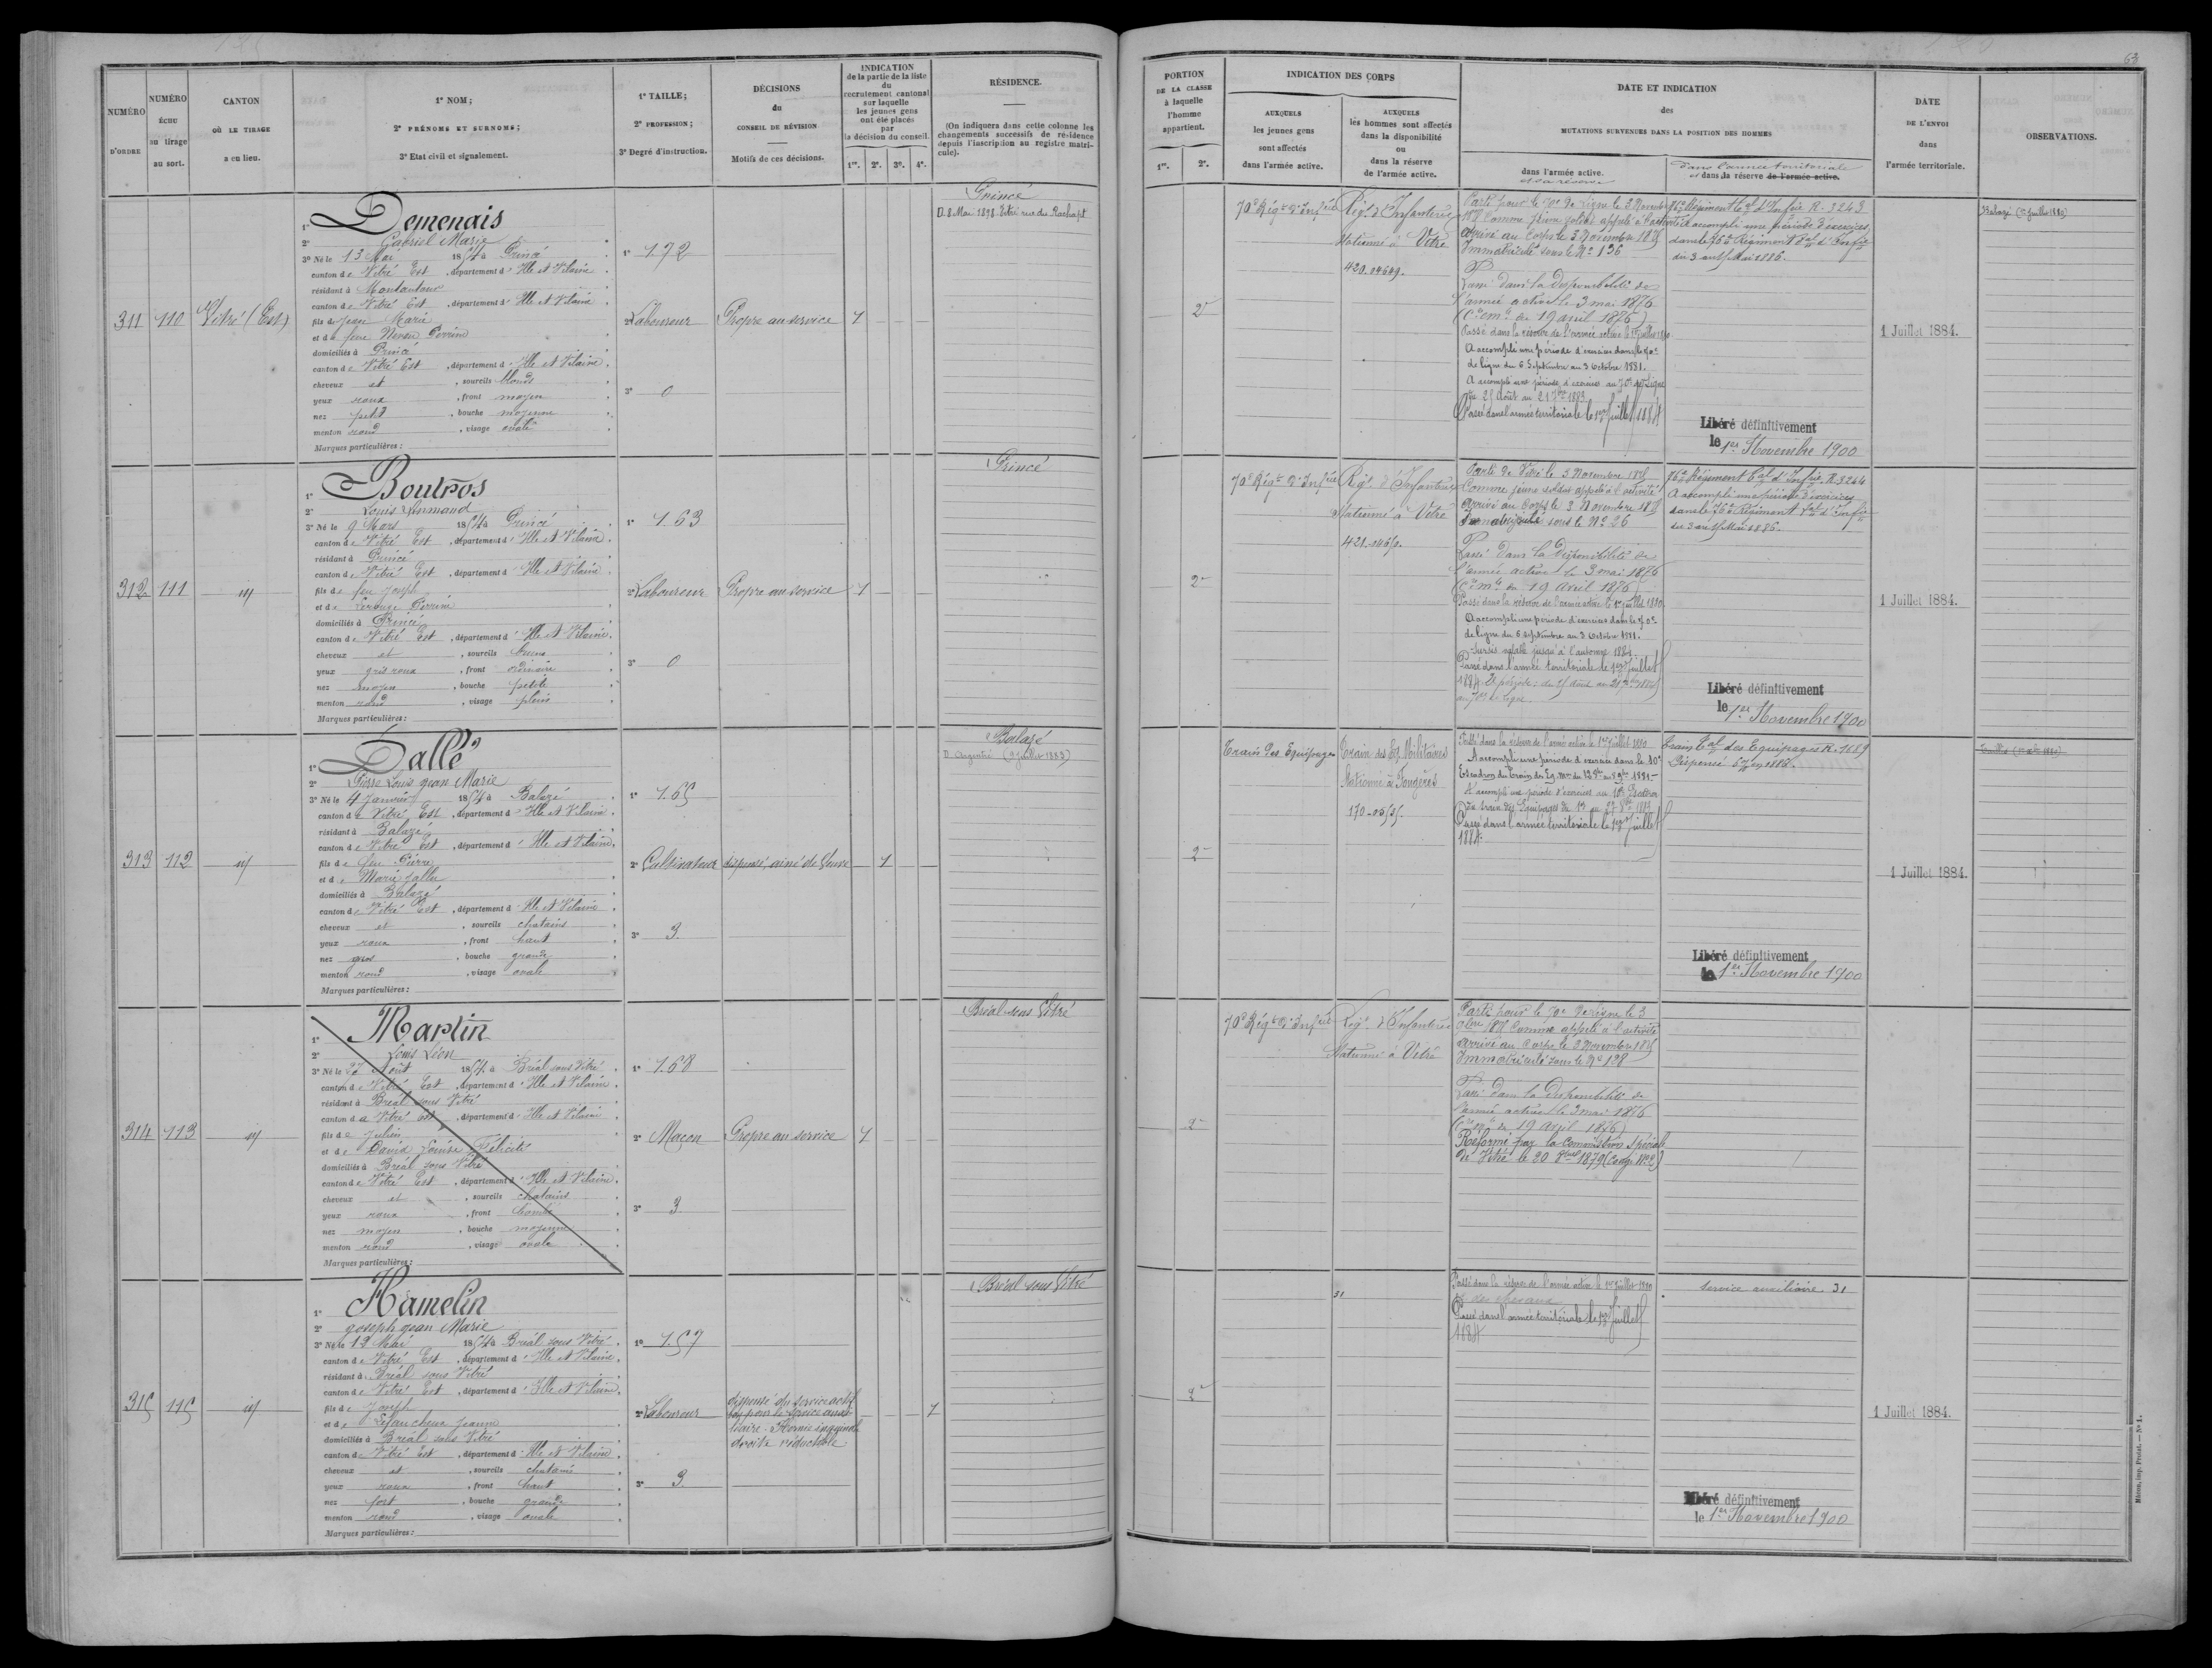 63
NUMÉRO D'ORDRE
NUMÉRO échu au tirage au sort.
CANTON OÙ LE TIRAGE a eu lieu.
1° NOM;
2° PRÉNOMS ET SURNOMS;
3° Etat civil et signalement.
1° TAILLE;
2° PROFESSION;
3° Degré d'instruction.
DÉCISIONS
du
CONSEIL DE RÉVISION
Motifs de ces décisions.
INDICATION
de la partie de la liste
du
recrutement cantonal
sur laquelle
les jeunes gens
ont été placés
par
la décision du conseil.
1re. 2e. 3e. 4e.
RÉSIDENCE.
(On indiquera dans cette colonne les
changements successifs de résidence
depuis l'inscription au registre matri-
cule).
PORTION
DE LA CLASSE
à laquelle
l'homme
appartient.
1re. 2e.
INDICATION DES CORPS
AUXQUELS
les jeunes gens
sont affectés
dans l'armée active.
AUXQUELS
les hommes sont affectés
dans la disponibilité
ou
dans la réserve
de l'armée active.
DATE ET INDICATION
des
MUTATIONS SURVENUES DANS LA POSITION DES HOMMES
dans l'armée active.
et sa réserve
dans l'armée territoriale
et dans la réserve de l'armée active.
DATE
DE L'ENVOI
dans
l'armée territoriale.
OBSERVATIONS.
311 110 Vitré (Est)
1° Demenais
2° Gabriel Marie
3° Né le 13 Mai 1854 à Princé
canton de Vitré Est, département d'Ille et Vilaine
résidant à Montautour
canton de Vitré Est, département d'Ille et Vilaine
fils de Jean Marie
et de feue Perrine
domiciliés à Princé
canton de Vitré Est, département d'Ille et Vilaine
cheveux et, sourcils blonds
yeux roux, front moyen
nez petit, bouche moyenne
menton rond, visage ovale
Marques particulières:
1° 1.72
2° Laboureur
3° 0
Propre au service
1
Princé
D. 8 Mai 1898 Vitré rue du Rachapt
2e
70e Régt d'Infrie
Régt d'Infanterie
Stationné à Vitré
420.04609.
Parti pour le 70e de ligne le 3 Novembre
1875 Comme jeune soldat appelé à l'activité
arrivé au Corps le 3 Novembre 1875
Immatriculé sous le No 136
Passé dans la Disponibilité de
l'armée active le 3 mai 1876
(Cion mlle du 19 avril 1876)
Passé dans la réserve de l'armée active le 1er juillet 1880
A accompli une période d'exercices dans le 70e
de ligne du 6 Septembre au 3 Octobre 1881.
A accompli une période d'exercices au 70e de Ligne
du 25 Août au 21 7bre 1883
Passé dans l'armée territoriale le 1er Juillet 1884
76e Régiment tal d'Infrie R. 3243
A accompli une période d'exercices
dans le 76e Régiment tal d'Infie
du 3 au 15 Mai 1886.
Libéré définitivement
le 1er Novembre 1900
1 Juillet 1884.
Balazé (1er Juillet 1880)
312 111 id
1° Boutros
2° Louis Armand
3° Né le 9 Mars 1854 à Princé
canton de Vitré Est, département d'Ille et Vilaine
résidant à Princé
canton de Vitré Est, département d'Ille et Vilaine
fils de feu Joseph
et de Perrine
domiciliés à Princé
canton de Vitré Est, département d'Ille et Vilaine
cheveux et, sourcils bruns
yeux gris roux, front ordinaire
nez moyen, bouche petite
menton rond, visage plein
Marques particulières:
1° 1.63
2° Laboureur
3° 0
Propre au service
1
Princé
2e
70e Régt d'Infrie
Régt d'Infanterie
Stationné à Vitré
421.
Parti de Vitré le 3 Novembre 1875
Comme jeune soldat appelé à l'activité
arrivé au Corps le 3 Novembre 1875
Immatriculé sous le No 26
Passé dans la Disponibilité de
l'armée active le 3 mai 1876
(Cion mlle du 19 Avril 1876)
Passé dans la réserve de l'armée active le 1er juillet 1880.
A accompli une période d'exercices dans le 70e
de ligne du 6 Septembre au 3 Octobre 1881.
Sursis valable jusqu'à l'automne 1884
Passé dans l'armée territoriale le 1er Juillet
1884
76e Régiment tal d'Infie. R. 3244
A accompli une période d'exercices
dans le 76e Régiment tal d'Infie
du 3 au 15 Mai 1886.
Libéré définitivement
le 1er Novembre 1900
1 Juillet 1884.
313 112 id
1° Dallé
2° Pierre Louis Jean Marie
3° Né le 4 Janvier 1854 à Balazé
canton de Vitré Est, département d'Ille et Vilaine
résidant à Balazé
canton de Vitré Est, département d'Ille et Vilaine
fils de feu Pierre
et de Marie Jallu
domiciliés à Balazé
canton de Vitré Est, département d'Ille et Vilaine
cheveux et, sourcils chatains
yeux roux, front haut
nez gros, bouche grande
menton rond, visage ovale
Marques particulières:
1° 1.65
2° Cultivateur
3° 3
dispensé, ainé de Veuve
1
Balazé
D. Argentré (9 Juillet 1883)
2e
Train des Equipages
Train des Eq. Militaires
Stationné à Fougères
170.
Passé dans la réserve de l'armée active le 1er Juillet 1880
A accompli une période d'exercice dans le 10e
Escadron du Train des Eq. Mres
A accompli une période d'exercices au 10e Escadron
du train des Equipages
Passé dans l'armée territoriale le 1er Juillet
1884.
Train tal des Equipages R. 1689
Dispensé en 1886.
Libéré définitivement
le 1er Novembre 1900
1 Juillet 1884.
314 113 id
1° Martin
2° Louis Léon
3° Né le 27 Août 1854 à Bréal sous Vitré
canton de Vitré Est, département d'Ille et Vilaine
résidant à Bréal sous Vitré
canton de Vitré Est, département d'Ille et Vilaine
fils de Julien
et de David Louise Félicité
domiciliés à Bréal sous Vitré
canton de Vitré Est, département d'Ille et Vilaine
cheveux et, sourcils chatains
yeux roux, front bombé
nez moyen, bouche moyenne
menton rond, visage ovale
Marques particulières:
1° 1.68
2° Maçon
3° 3
Propre au service
1
Bréal sous Vitré
2e
70e Régt d'Infrie
Régt d'Infanterie
Stationné à Vitré
Parti pour le 70e de Ligne le 3
9bre 1875 Comme appelé à l'activité
arrivé au Corps le 3 Novembre 1875
Immatriculé sous le No 128
Passé dans la Disponibilité de
l'armée active le 3 mai 1876
(Cion mlle du 19 Avril 1876)
Réformé par la Commission spéciale
de Vitré le 20 1879 (Congé No 2)
315 115 id
1° Hamelin
2° Joseph Jean Marie
3° Né le 12 Mai 1854 à Bréal sous Vitré
canton de Vitré Est, département d'Ille et Vilaine
résidant à Bréal sous Vitré
canton de Vitré Est, département d'Ille et Vilaine
fils de Joseph
et de Lefaucheux Jeanne
domiciliés à Bréal sous Vitré
canton de Vitré Est, département d'Ille et Vilaine
cheveux et, sourcils chatains
yeux roux, front haut
nez fort, bouche grande
menton rond, visage ovale
Marques particulières:
1° 1.57
2° Laboureur
3° 3
dispensé du service actif
bon pour le service auxi-
liaire. Hernie inguinale
droite réductible
1
Bréal sous Vitré
2e
31
Passé dans la réserve de l'armée active le 1er Juillet 1880
Passé dans l'armée territoriale le 1er Juillet
1884
Service auxiliaire 31
Libéré définitivement
le 1er Novembre 1900
1 Juillet 1884.
Mâcon, imp. Protat. — No 1.